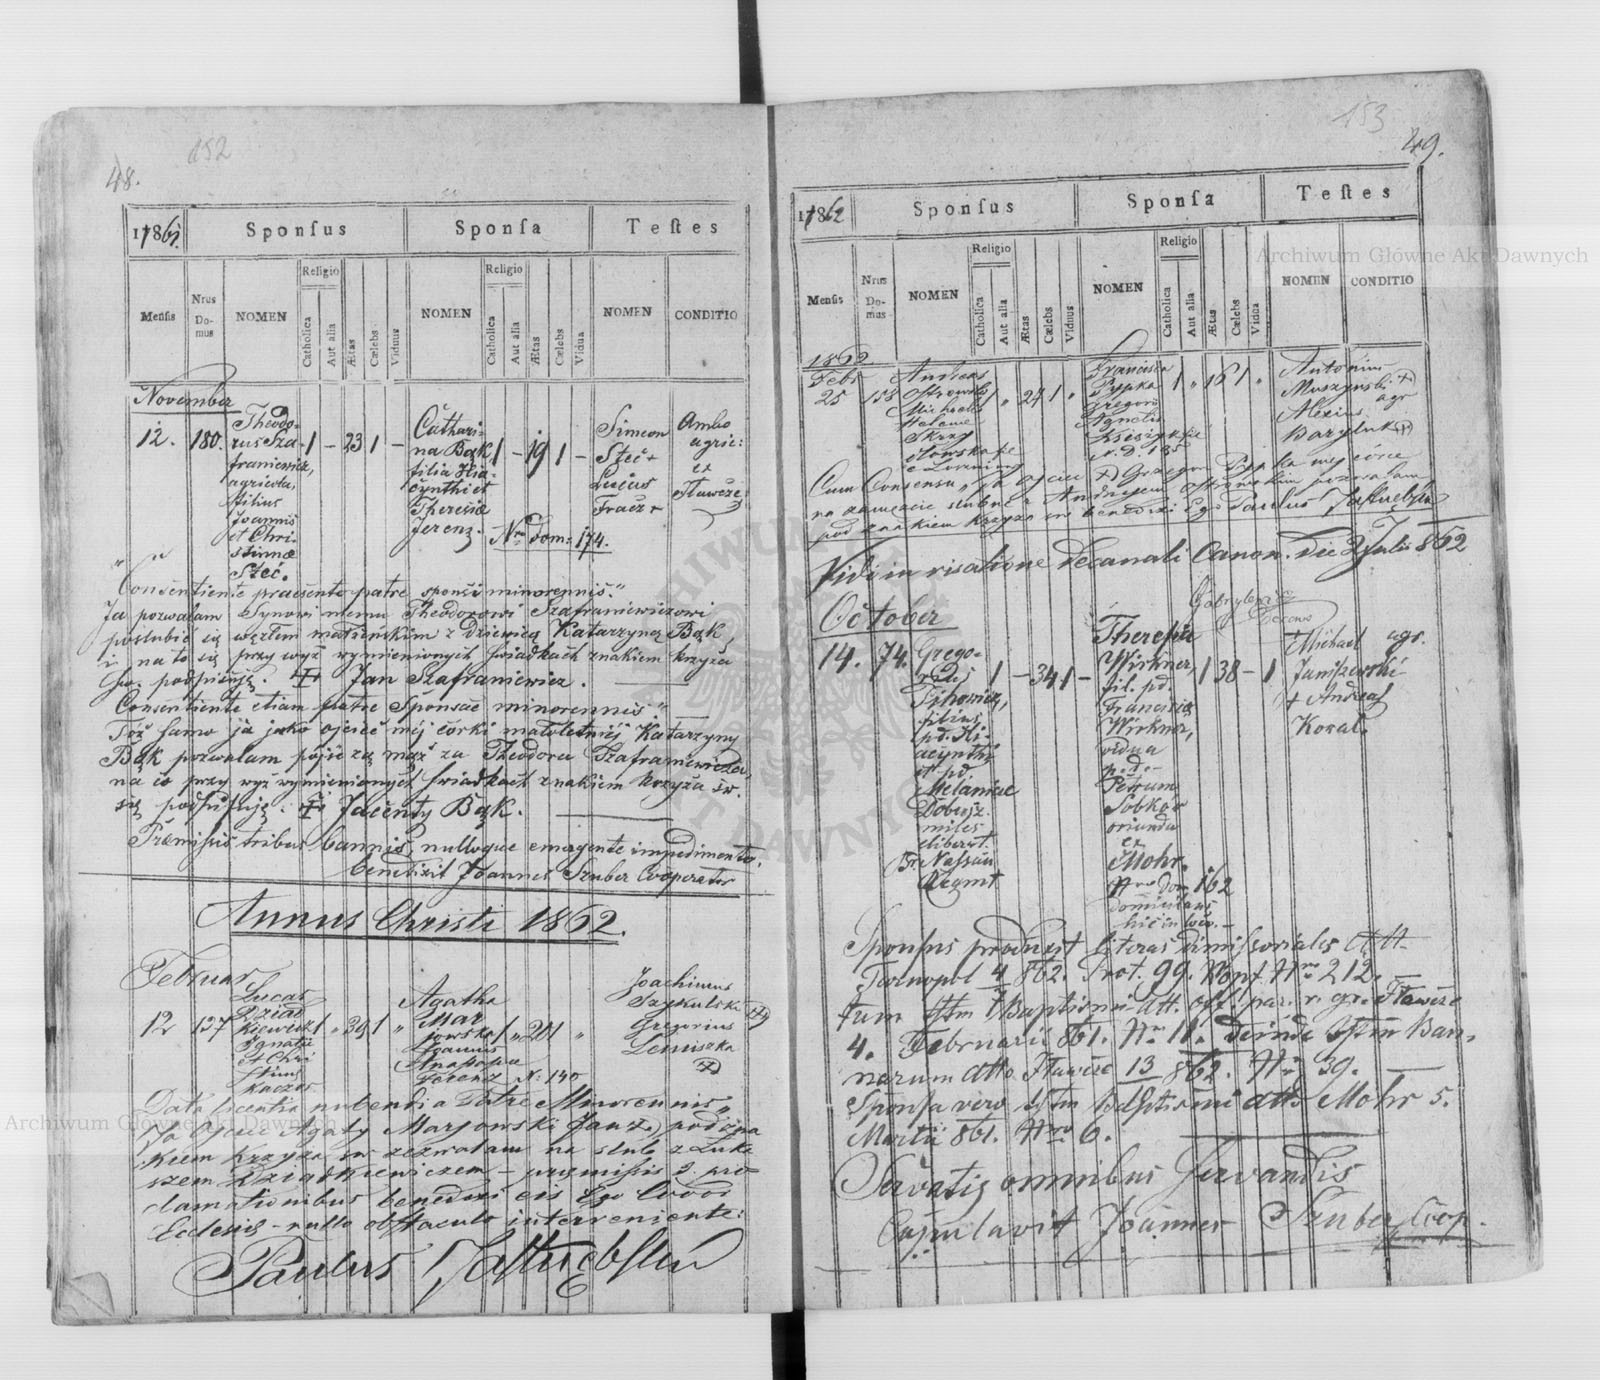 48.
152
11861
Sponſus
Sponſa
Teſtes
Menſis
Nrus Domus
NOMEN
Religio
Catholica
Aut alia
Ætas
Cælebs
Viduus
NOMEN
Religio
Catholica
Aut alia
Ætas
Cælebs
Vidua
NOMEN
CONDITIO
November
12. 180. Theodorus Szafraniewicz, agricola, filius Joannis et Christinae Steć.
1 – 23 1 –
Catharina Bąk filia Hiacynthi et Theresiae Jerenz. Nrus dom: 174.
1 – 19 1 –
Simeon Steć + Lucas Tracz +
Ambo agric: ex Ławcze
Consentiente praesente patre sponsi minorennis."
Ja pozwalam Synowi memu Theodorowi Szafraniewiczowi
poslubić się węzłem małżenskim z dziewicą Katarzyną Bąk,
i na to się przy wyż wymienionych świadkach znakiem krzyża
św. podpisuję. + Jan Szafraniewicz.
Consentiente etiam patre Sponsae minorennis"
Toż samo ja jako ojciec méj córki małoletniéj Katarzyny
Bąk pozwalam pójść za mąż za Theodora Szafraniewicza,
na co przy wyż wymienionych świadkach znakiem krzyża św.
się podpisuję. + Jacenty Bąk.
Praemissis tribus bannis, nulloque emergente impedimento,
benedixit Joannes Szuber Cooperator
Annus Christi 1862.
Februar
12 137 Lucas Dziadkiewicz Ignatii et Christinae Kaczor
1 " 39 1 "
Agatha Marjowska Joannis Anastasia Jerenz N. 140
1 " 20 1 "
Joachimus Szykulski Gregorius Lemiszka
Data licentia nubendi a Patre Minorennis"
Ja Ojciec Agaty Marjowski Jan pod zna
kiem krzyża św zezwalam na slub z Łuka
szem Dziadkiewiczem – praemissis 3. pro
clamationibus benedixi eis Ego Coop
Ecclesiae – nullo obstaculo interveniente:
Paulus Jastrzębski
153
49.
11862
Sponſus
Sponſa
Teſtes
Menſis
Nrus Domus
NOMEN
Religio
Catholica
Aut alia
Ætas
Cælebs
Viduus
NOMEN
Religio
Catholica
Aut alia
Ætas
Cælebs
Vidua
NOMEN
CONDITIO
1862
Febr 25 153 Andreas Ostrowski Michaelis Helenae
1 " 27 1 "
Francisca Pypka Gregorii Agnetis N. D. 135
1 " 16 1 "
Antonius Muszynski + agr Alexius Baryluk +
Cum Consensu " Ja ojciec + Grzegorz Pypka mej córce
na zawarcie slubu z Andrzejem Ostrowskim pozwalam
pod znakiem krzyża św benedixi Ego Paulus Jastrzębski
Vidi in visatione decanali Canon. die 2 Julii 862
Gabrylewicz
Decanus
October
14. 74. Gregorius Tihowicz, filius pd. Hiacynthi et pd. Melaniae Dobrosz. miles Br. Nassau Regmt
1 – 34 1 –
Theresia Wirkner, fil. pd. Francisci Wirkner, vidua p. d. – Petrum Sobków oriunda ex Mohr. Nro Dom 162 domicilians hic in loco. –
1 38 – 1
Michael Janiszewski + Andreas Kowal.
agr.
Sponsus produxit literas dimissoriales dtt
Tarnopol 4/7 862. Prot. 99. Konf. Nro 212.
tum Ltm Baptismi dtt. off. par. r. gr. Ławcze
4. Februarii 861. Nr. 11. deinde Ltm Ban,
norum dtto Ławcze 13/ 862. Nr. 39.
Sponsa vero Ltm Baptismi dtto Mohr 5.
Martii 861. Nro 6.
Servatis omnibus servandis
Copulavit Joannes Szuber Coop.
Archiwum Główne Akt Dawnych
Archiwum Główne Akt Dawnych